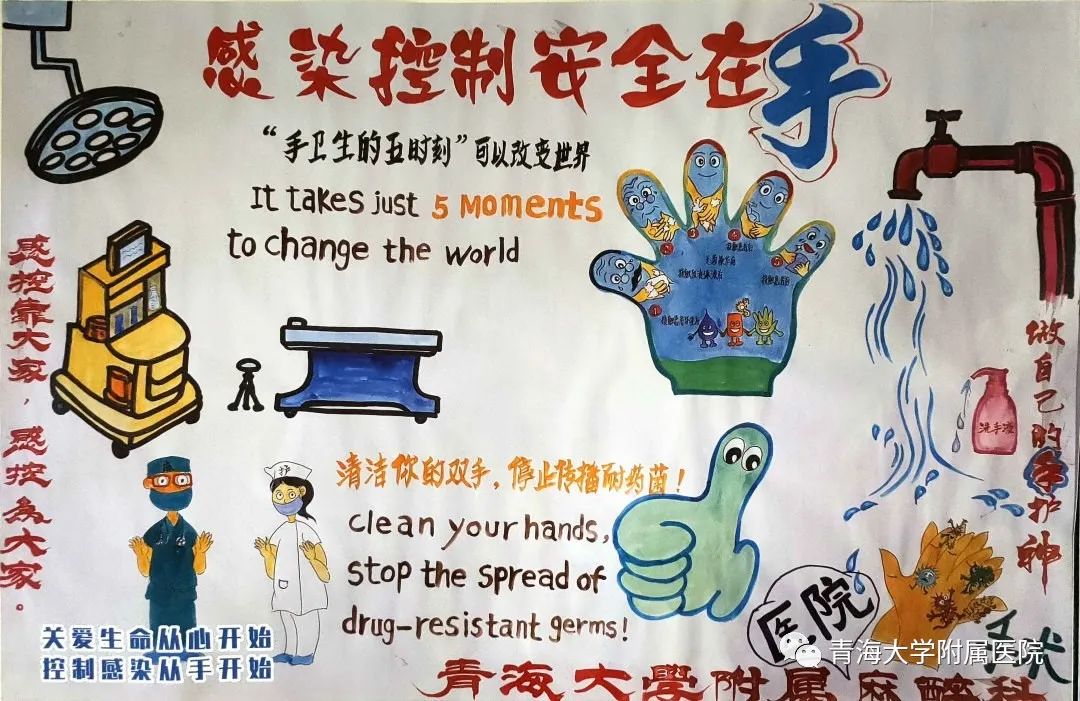 感染控制安全在手
“手卫生的五时刻”可以改变世界
It takes just 5 Moments
to change the world
感控靠大家，感控為大家。
做自己的手护神
洗手液
护
清洁你的双手，停止传播耐药菌！
clean your hands,
stop the spread of
drug-resistant germs!
关爱生命从心开始
控制感染从手开始
医院
青海大学附属医院
青海大學附属麻醉科